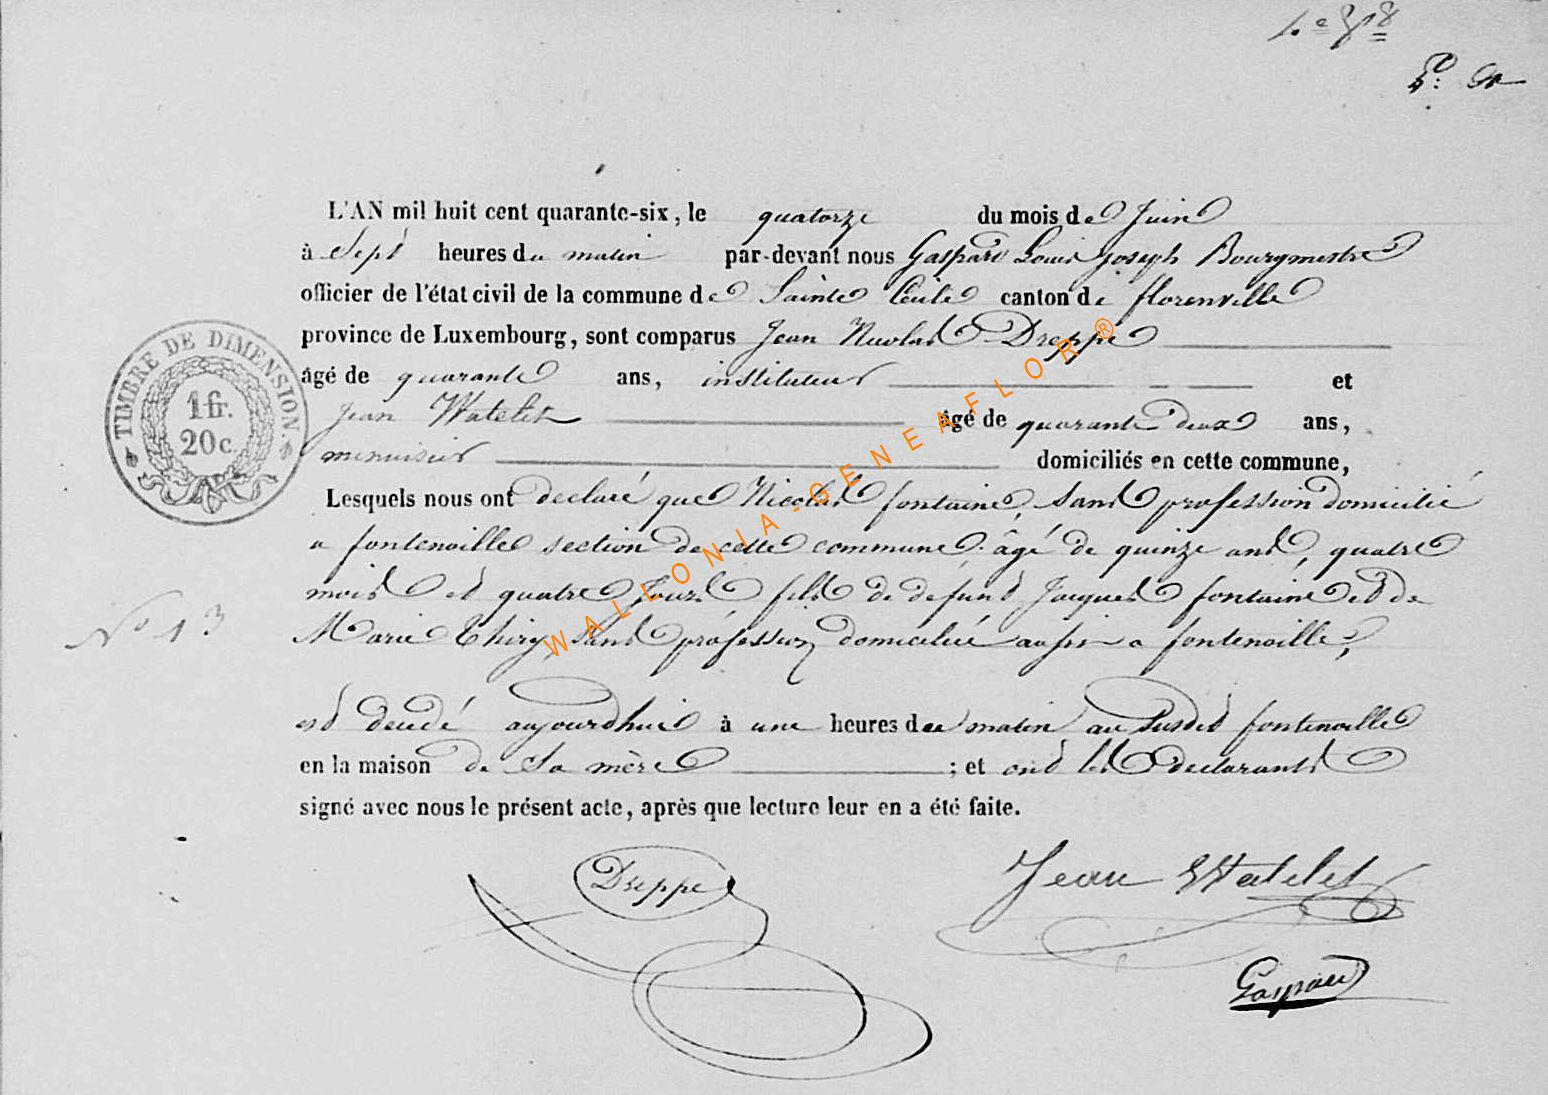 L'AN mil huit cent quarante-six, le quatorze du mois de Juin
à Sept heures du matin par-devant nous Gaspard Louis Joseph Bourgmestre
officier de l'état civil de la commune de Sainte Cécile canton de florenville
province de Luxembourg, sont comparus Jean Nicolas Dreppe
âgé de quarante ans, instituteur et
Jean Watelet âgé de quarante deux ans,
menuisier domiciliés en cette commune,
Lesquels nous ont declaré que Nicolas fontaine, sans profession domicilié
a fontenoille section de cette commune, âgé de quinze ans, quatre
mois et quatre jours fils de defunt Jacques fontaine et de
N° 13
Marie Thiry sans profession domiciliée aussi a fontenoille,
est decedé aujourdhui à une heures du matin au susdit fontenoille
en la maison de sa mère ; et ont les declarants
signé avec nous le présent acte, après que lecture leur en a été faite.
TIMBRE DE DIMENSION
1 fr.
20 c.
Dreppe
Jean Watelet
Gaspard
WALLONIA-GENEAFLOR®